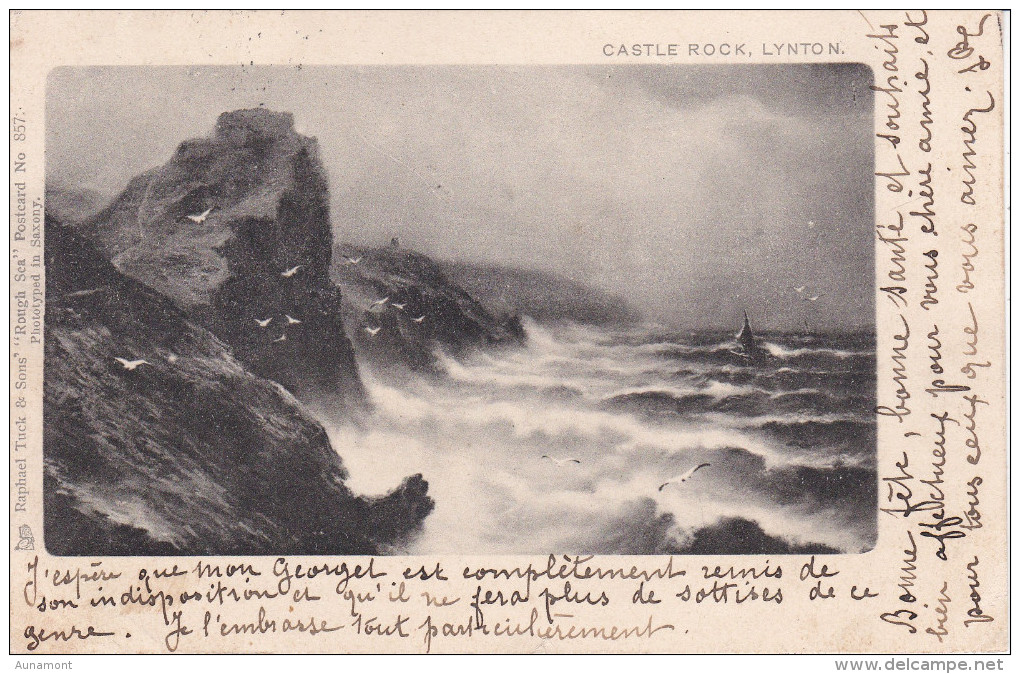 CASTLE ROCK, LYNTON.
Raphael Tuck & Sons' "Rough Sea" Postcard No 857.
Phototyped in Saxony.
Bonne fête, bonne santé et souhaits
bien affectueux pour vous chère amie, et
pour tous ceux que vous aimez.
J'espère que mon Georget est complètement remis de
son indisposition et qu'il ne fera plus de sottises de ce
genre. Je l'embrasse tout particulièrement.
Aunamont
www.delcampe.net